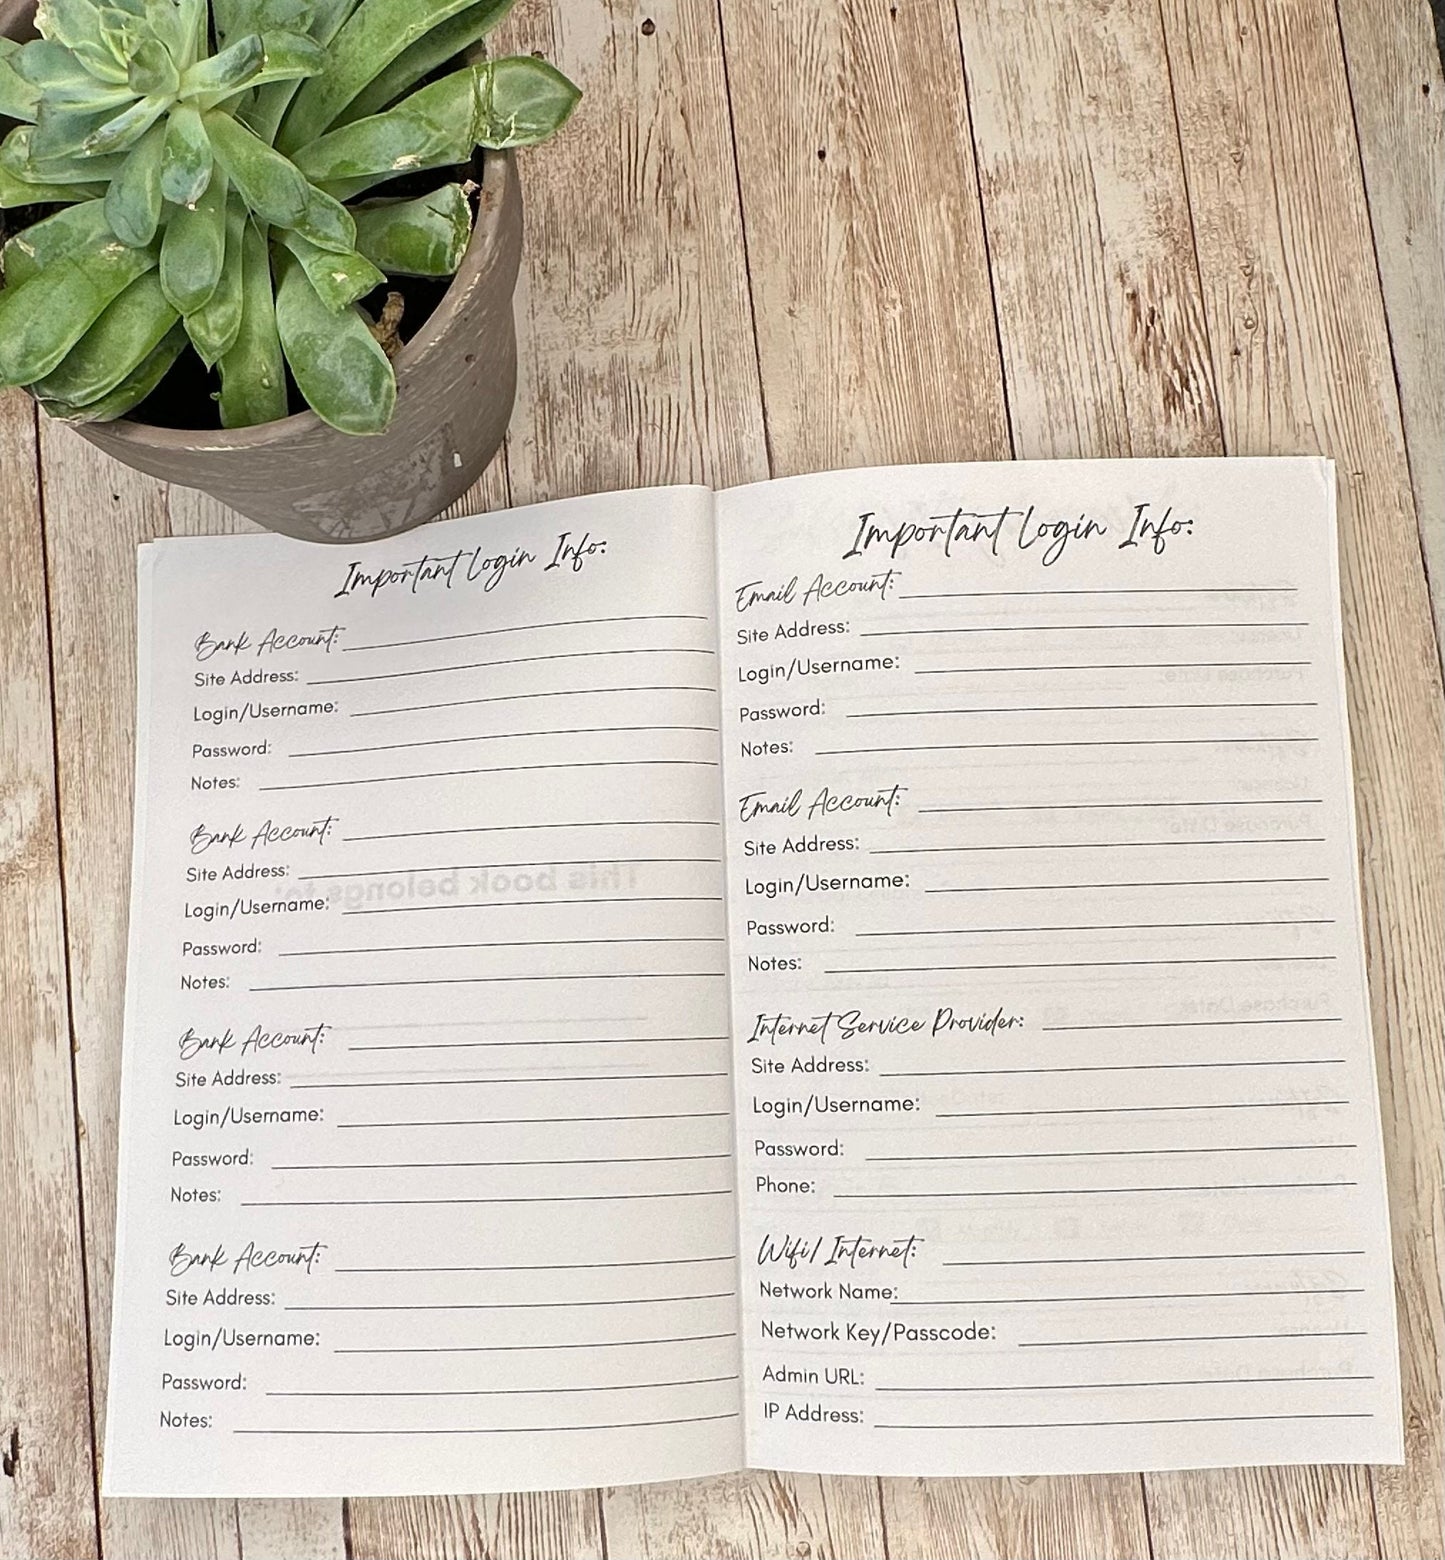 Important Login Info:
Bank Account:
Site Address:
Login/Username:
Password:
Notes:
Bank Account:
Site Address:
Login/Username:
Password:
Notes:
Bank Account:
Site Address:
Login/Username:
Password:
Notes:
Bank Account:
Site Address:
Login/Username:
Password:
Notes:
This book belongs to:
Important Login Info:
Email Account:
Site Address:
Login/Username:
Password:
Notes:
Email Account:
Site Address:
Login/Username:
Password:
Notes:
Internet Service Provider:
Site Address:
Login/Username:
Password:
Phone:
Wifi/Internet:
Network Name:
Network Key/Passcode:
Admin URL:
IP Address: